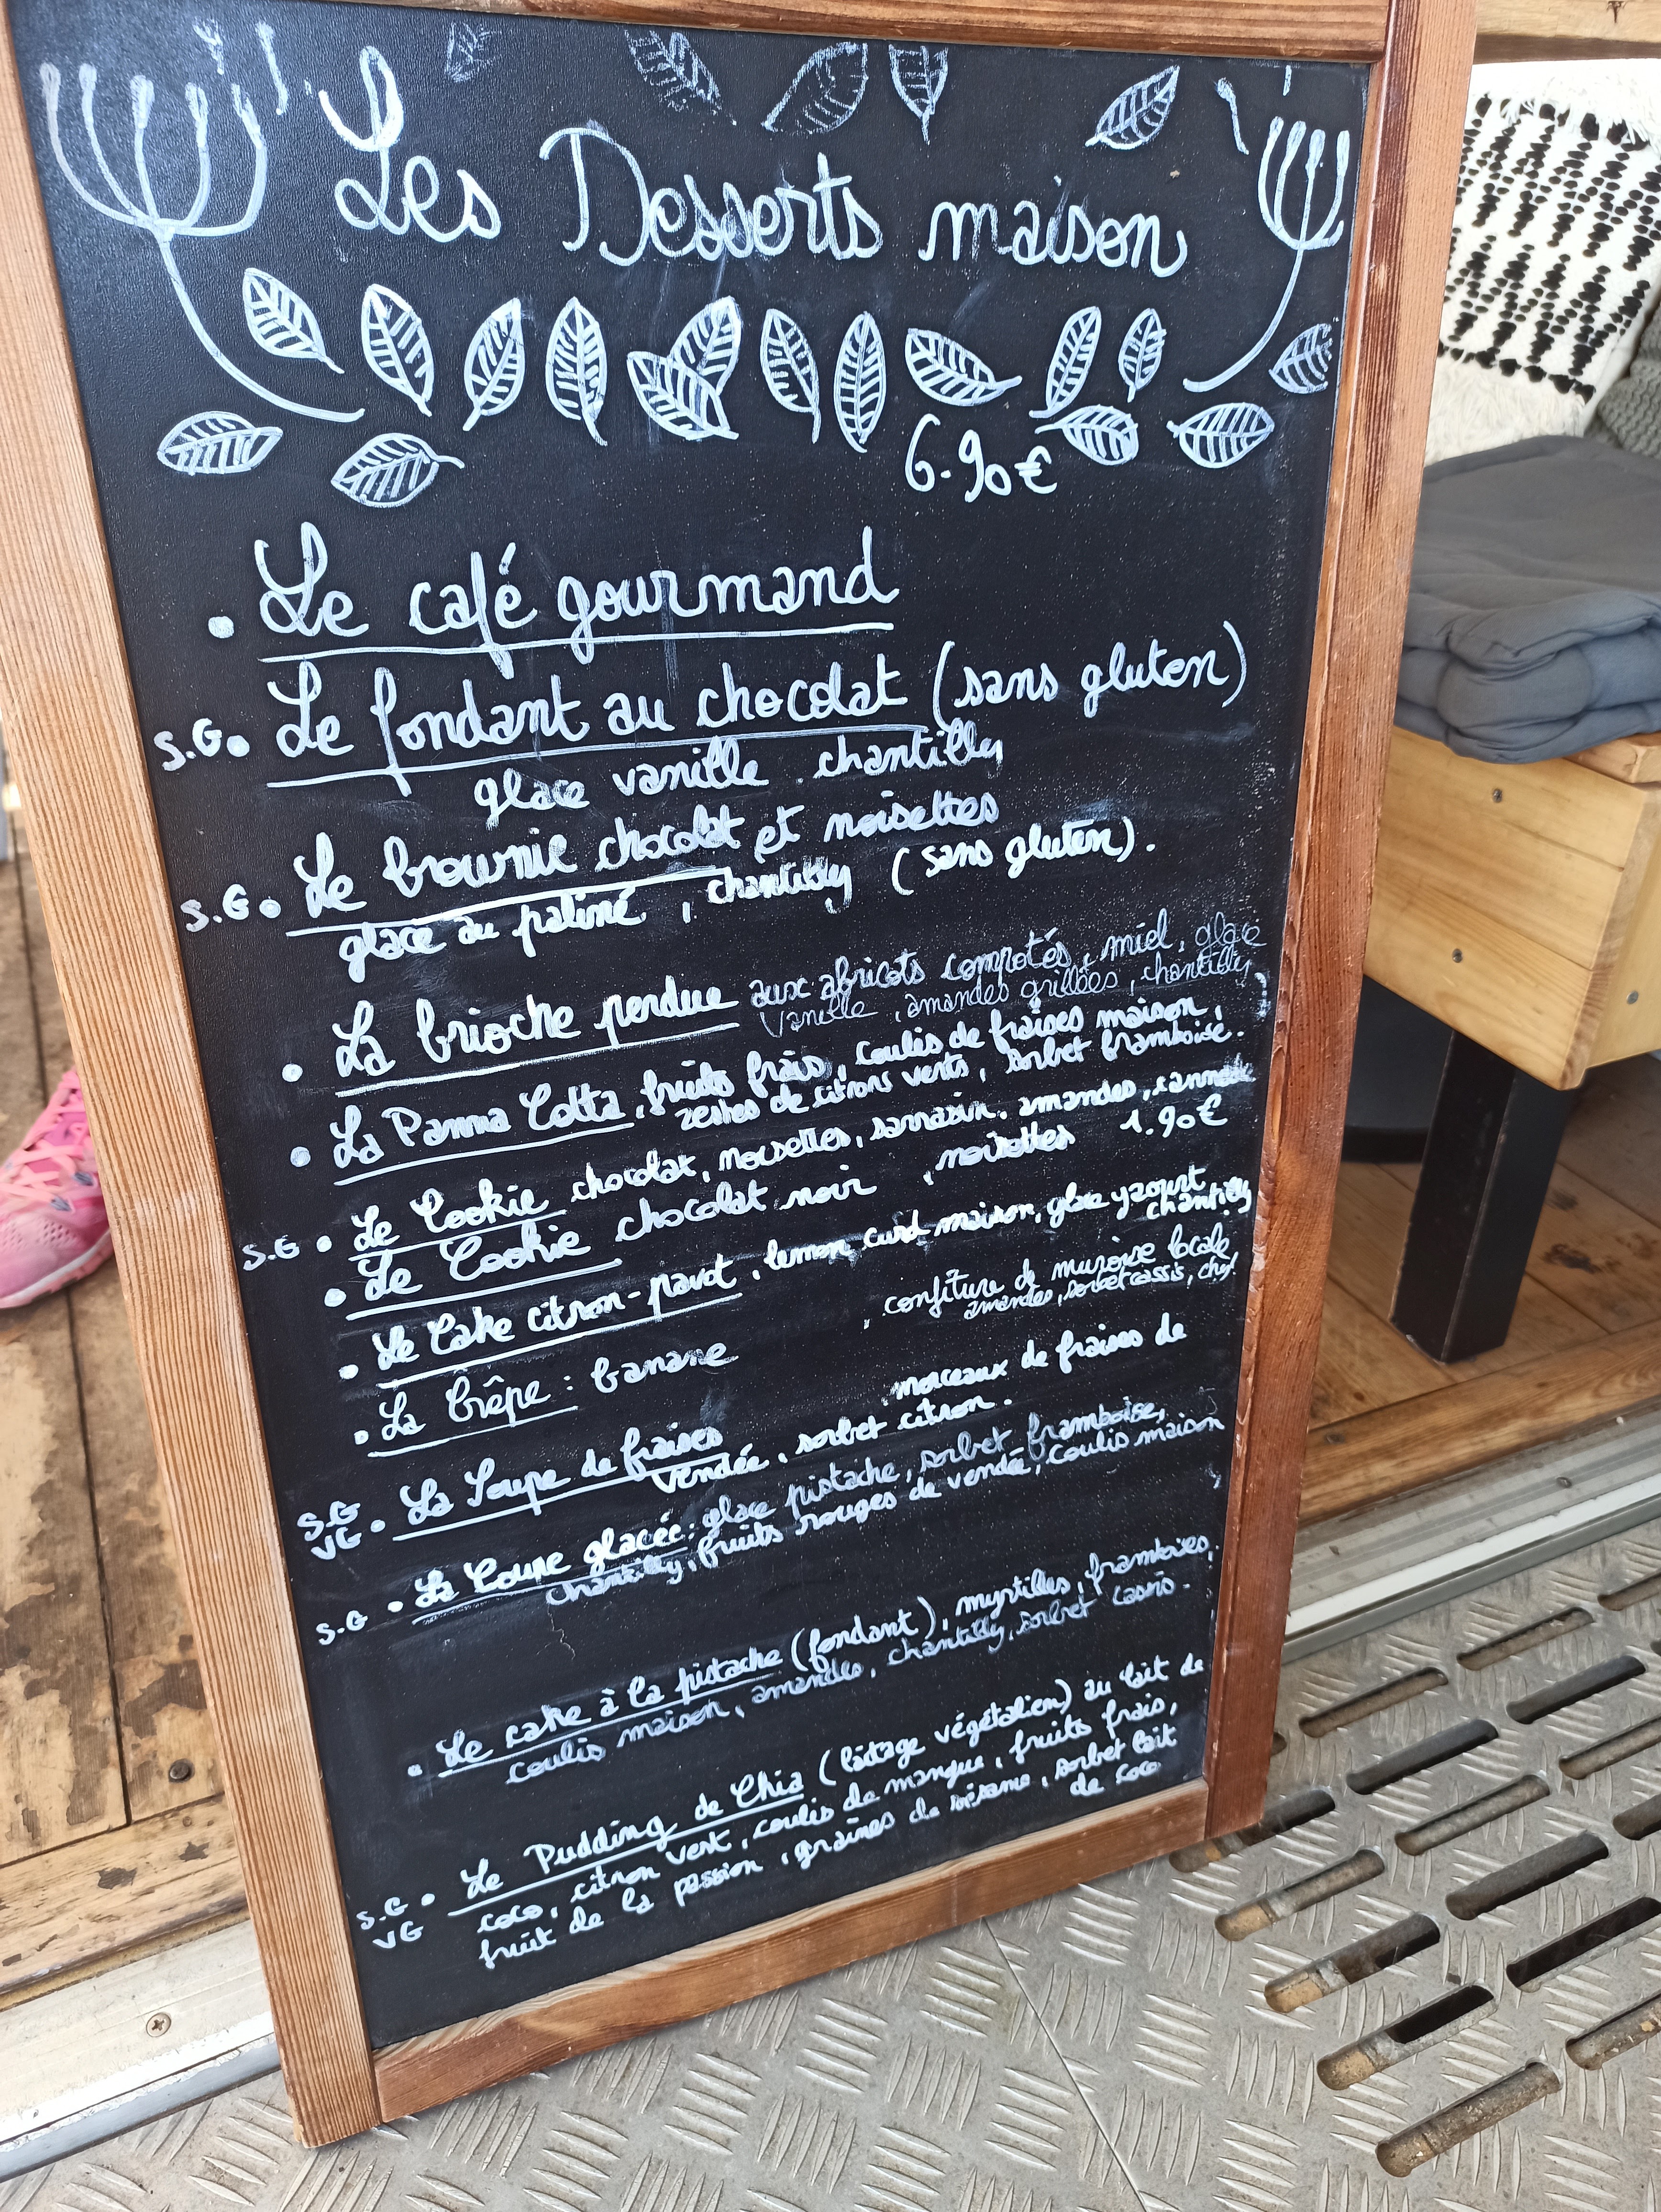 Les Desserts maison
6.90€
. Le café gourmand
S.G. Le fondant au chocolat (sans gluten)
glace vanille . chantilly
S.G. Le brownie chocolat et noisettes
glace au paliné , chantilly (sans gluten).
. La brioche perdue aux abricots compotés, miel, glace
vanille , amandes grillées, chantilly
. La Panna Cotta, fruits frais, coulis de fraises maison,
zestes de citrons verts, sorbet framboise.
S.G . Le Cookie chocolat, noisettes, sarrasin, amandes, cannelle
. Le Cookie chocolat noir , noisettes 1.90€
. Le Cake citron-pavot , lemon curd maison, glace yaourt
chantilly
. La Crêpe : banane , confiture de muroise locale
amandes, sorbet cassis,
S.G VG . La Soupe de fraises , morceaux de fraises de
vendée, sorbet citron.
S.G . La Coupe glacée: glace pistache, sorbet framboise,
chantilly, fruits rouges de vendée, coulis maison
. Le cake à la pistache (fondant), myrtilles, framboises,
coulis maison, amandes, chantilly, sorbet cassis.
S.G VG . Le Pudding de Chia (laitage végétalien) au lait de
coco, citron vert, coulis de mangue, fruits frais,
fruit de la passion, graines de sésame, sorbet lait
de coco